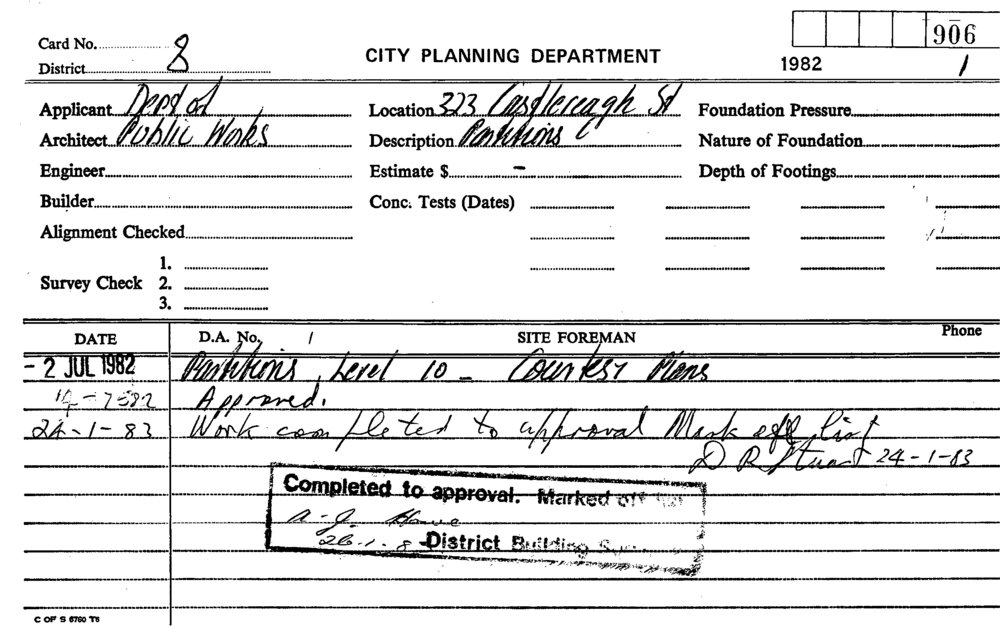 906
Card No. 8
CITY PLANNING DEPARTMENT
1982 1
District
Applicant Dept of
Location 323 Castlereagh St
Foundation Pressure
Architect Public Works
Description Partitions
Nature of Foundation
Engineer
Estimate $ –
Depth of Footings
Builder
Conc. Tests (Dates)
Alignment Checked
1.
Survey Check 2.
3.
DATE D.A. No. / SITE FOREMAN Phone
- 2 JUL 1982 Partitions, Level 10 - Courtesy Plans
Approved.
24-1-83 Work completed to approval Mark off list
D R Stuart 24-1-83
Completed to approval. Marked off
A. J. Howe
26.1.8 District Building
C OF S 6760 T6